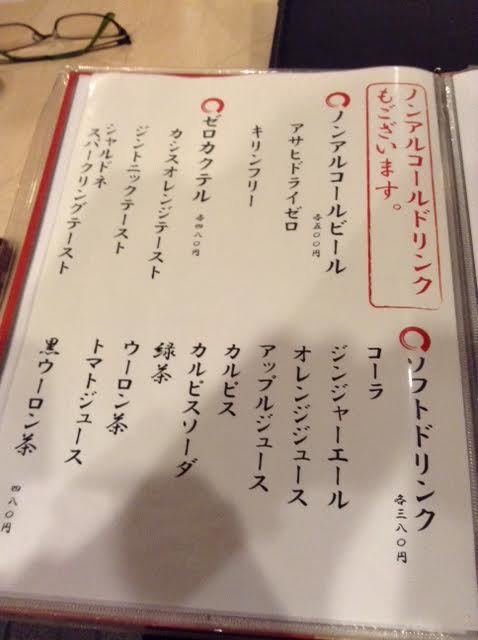 ノンアルコールドリンク
もございます。
ノンアルコールビール
各五〇〇円
アサヒドライゼロ
キリンフリー
ゼロカクテル
各四八〇円
カシスオレンジテースト
ジントニックテースト
シャルドネ
スパークリングテースト
ソフトドリンク
各三八〇円
コーラ
ジンジャーエール
オレンジジュース
アップルジュース
カルピス
カルピスソーダ
緑茶
ウーロン茶
トマトジュース
黒ウーロン茶
四八〇円